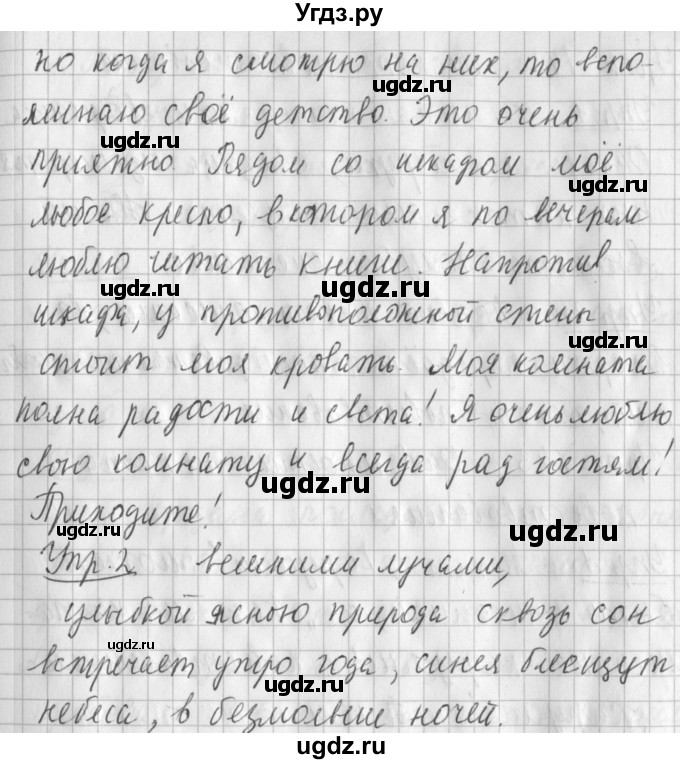 Угдз.ру
но когда я смотрю на них, то вспо-
минаю своё детство. Это очень
приятно. Рядом со шкафом моё
любое кресло, в котором я по вечерам
люблю читать книги. Напротив
шкафа, у противоположной стены
стоит моя кровать. Моя комната
полна радости и света! Я очень люблю
свою комнату и всегда рад гостям!
Приходите!
Упр. 2 вешними лучами,
улыбкой ясною природа сквозь сон
встречает утро года, синея блещут
небеса, в безмолвии ночей.
ugdz.ru
ugdz.ru
ugdz.ru
ugdz.ru
ugdz.ru
ugdz.ru
ugdz.ru
ugdz.ru
ugdz.ru
ugdz.ru
ugdz.ru
ugdz.ru
ugdz.ru